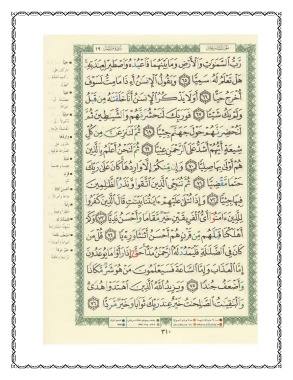 رَّبُّ ٱلسَّمَٰوَٰتِ وَٱلْأَرْضِ وَمَا بَيْنَهُمَا فَٱعْبُدْهُ وَٱصْطَبِرْ لِعِبَٰدَتِهِۦ
هَلْ تَعْلَمُ لَهُۥ سَمِيًّا ٦٥ وَيَقُولُ ٱلْإِنسَٰنُ أَءِذَا مَا مِتُّ لَسَوْفَ
أُخْرَجُ حَيًّا ٦٦ أَوَلَا يَذْكُرُ ٱلْإِنسَٰنُ أَنَّا خَلَقْنَٰهُ مِن قَبْلُ
وَلَمْ يَكُ شَيْـًٔا ٦٧ فَوَرَبِّكَ لَنَحْشُرَنَّهُمْ وَٱلشَّيَٰطِينَ ثُمَّ
لَنُحْضِرَنَّهُمْ حَوْلَ جَهَنَّمَ جِثِيًّا ٦٨ ثُمَّ لَنَنزِعَنَّ مِن كُلِّ
شِيعَةٍ أَيُّهُمْ أَشَدُّ عَلَى ٱلرَّحْمَٰنِ عِتِيًّا ٦٩ ثُمَّ لَنَحْنُ أَعْلَمُ بِٱلَّذِينَ
هُمْ أَوْلَىٰ بِهَا صِلِيًّا ٧٠ وَإِن مِّنكُمْ إِلَّا وَارِدُهَا كَانَ عَلَىٰ رَبِّكَ
حَتْمًا مَّقْضِيًّا ٧١ ثُمَّ نُنَجِّى ٱلَّذِينَ ٱتَّقَوا۟ وَّنَذَرُ ٱلظَّٰلِمِينَ
فِيهَا جِثِيًّا ٧٢ وَإِذَا تُتْلَىٰ عَلَيْهِمْ ءَايَٰتُنَا بَيِّنَٰتٍ قَالَ ٱلَّذِينَ كَفَرُوا۟
لِلَّذِينَ ءَامَنُوٓا۟ أَىُّ ٱلْفَرِيقَيْنِ خَيْرٌ مَّقَامًا وَأَحْسَنُ نَدِيًّا ٧٣ وَكَمْ
أَهْلَكْنَا قَبْلَهُم مِّن قَرْنٍ هُمْ أَحْسَنُ أَثَٰثًا وَرِءْيًا ٧٤ قُلْ مَن
كَانَ فِى ٱلضَّلَٰلَةِ فَلْيَمْدُدْ لَهُ ٱلرَّحْمَٰنُ مَدًّا حَتَّىٰٓ إِذَا رَأَوْا۟ مَا يُوعَدُونَ
إِمَّا ٱلْعَذَابَ وَإِمَّا ٱلسَّاعَةَ فَسَيَعْلَمُونَ مَنْ هُوَ شَرٌّ مَّكَانًا
وَأَضْعَفُ جُندًا ٧٥ وَيَزِيدُ ٱللَّهُ ٱلَّذِينَ ٱهْتَدَوْا۟ هُدًى
وَٱلْبَٰقِيَٰتُ ٱلصَّٰلِحَٰتُ خَيْرٌ عِندَ رَبِّكَ ثَوَابًا وَخَيْرٌ مَّرَدًّا ٧٦
٣١٠